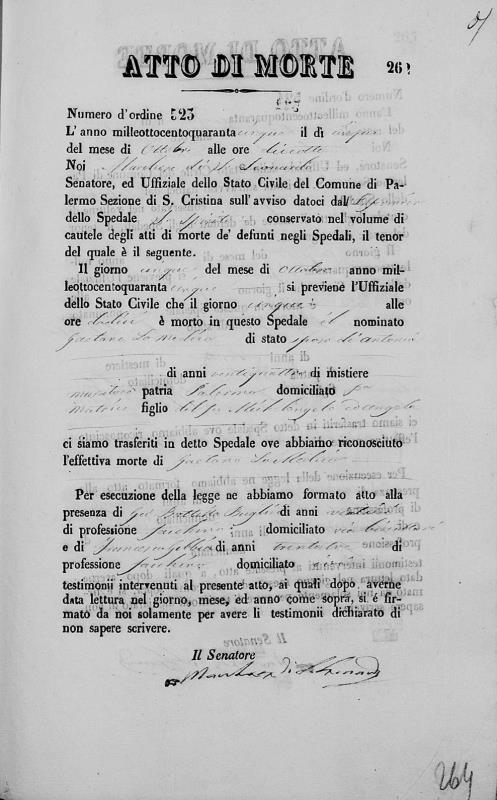 ATTO DI MORTE 262
Numero d'ordine 523
L'anno milleottocentoquaranta cinque il di cinque
del mese di Ottobre alle ore diciotto
Noi Marchese di S. Leonardo
Senatore, ed Uffiziale dello Stato Civile del Comune di Pa-
lermo Sezione di S. Cristina sull'avviso datoci dal
dello Spedale conservato nel volume di
cautele degli atti di morte de' defunti negli Spedali, il tenor
del quale è il seguente.
Il giorno cinque del mese di Ottobre anno mil-
leottocentoquaranta cinque si previene l'Uffiziale
dello Stato Civile che il giorno cinque alle
ore è morto in questo Spedale il nominato
Gaetano Lo Medico di stato sposo di Antonia
di anni ventiquattro di mistiere
muratore patria Palermo domiciliato
figlio del fu Michelangelo ed Angela
ci siamo trasferiti in detto Spedale ove abbiamo riconosciuto
l'effettiva morte di Gaetano Lo Medico
Per esecuzione della legge ne abbiamo formato atto alla
presenza di Gio Battista di anni
di professione facchino domiciliato via
e di Francesco di anni trentatre di
professione facchino domiciliato
testimonii intervenuti al presente atto, ai quali dopo averne
data lettura nel giorno, mese, ed anno come sopra, si è fir-
mato da noi solamente per avere li testimonii dichiarato di
non sapere scrivere.
Il Senatore
Marchese di S. Leonardo
264